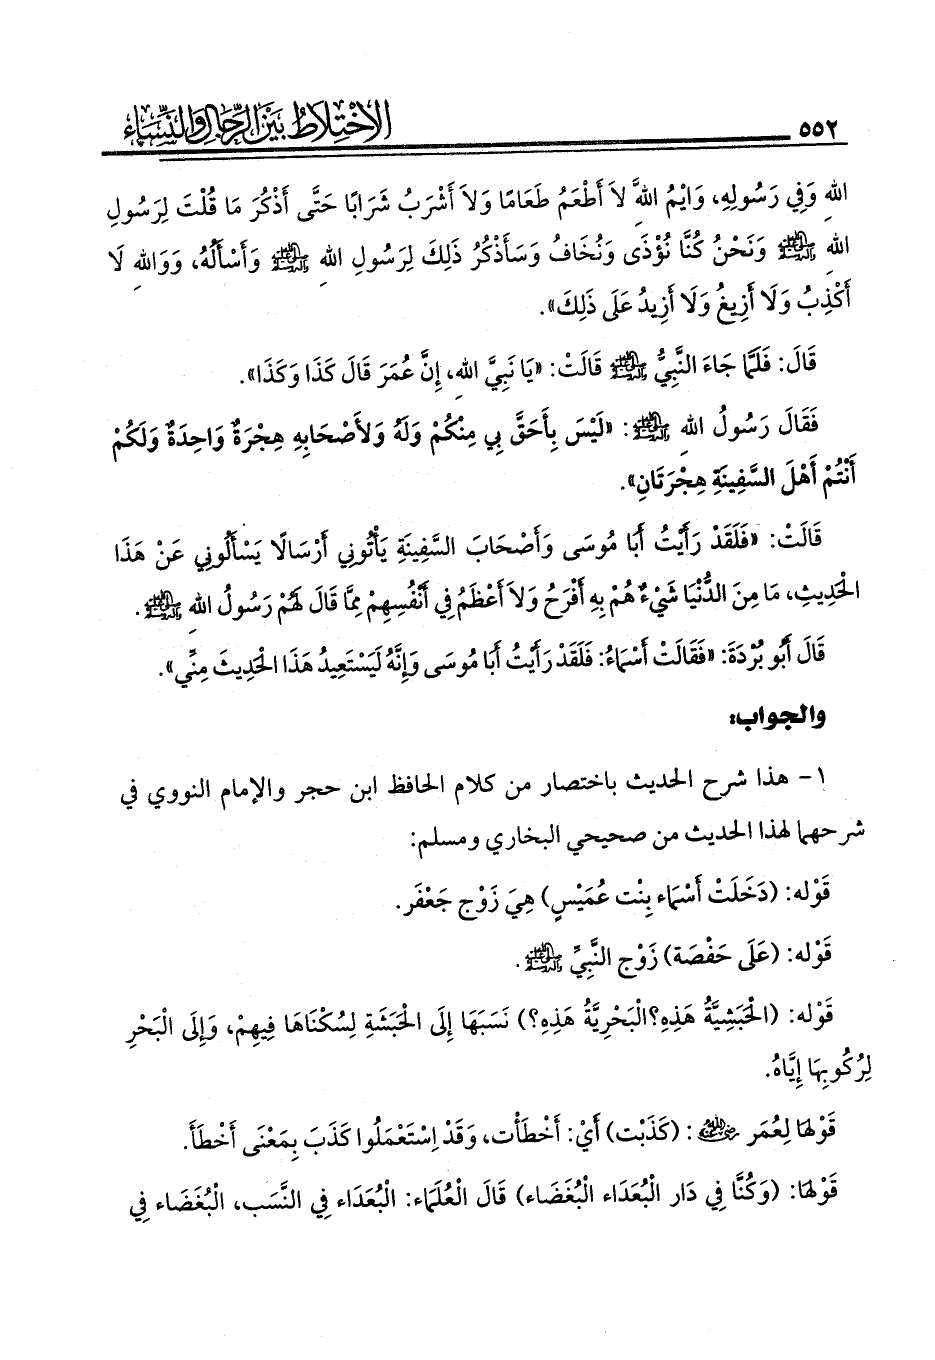 ٥٥٢ الاختلاط بين الرجال والنساء
اللهِ وَفِي رَسُولِهِ، وَايْمُ اللهِ لاَ أَطْعَمُ طَعَامًا وَلاَ أَشْرَبُ شَرَابًا حَتَّى أَذْكُرَ مَا قُلْتَ لِرَسُولِ
اللهِ ﷺ وَنَحْنُ كُنَّا نُؤْذَى وَنُخَافُ وَسَأَذْكُرُ ذَلِكَ لِرَسُولِ اللهِ ﷺ وَأَسْأَلُهُ، وَوَاللهِ لَا
أَكْذِبُ وَلَا أَزِيغُ وَلَا أَزِيدُ عَلَى ذَلِكَ».
قَالَ: فَلَمَّا جَاءَ النَّبِيُّ ﷺ قَالَتْ: «يَا نَبِيَّ اللهِ، إِنَّ عُمَرَ قَالَ كَذَا وَكَذَا».
فَقَالَ رَسُولُ اللهِ ﷺ: «لَيْسَ بِأَحَقَّ بِي مِنْكُمْ وَلَهُ وَلأَصْحَابِهِ هِجْرَةٌ وَاحِدَةٌ وَلَكُمْ
أَنْتُمْ أَهْلَ السَّفِينَةِ هِجْرَتَانِ».
قَالَتْ: «فَلَقَدْ رَأَيْتُ أَبَا مُوسَى وَأَصْحَابَ السَّفِينَةِ يَأْتُونِي أَرْسَالًا يَسْأَلُونِي عَنْ هَذَا
الْحَدِيثِ، مَا مِنَ الدُّنْيَا شَيْءٌ هُمْ بِهِ أَفْرَحُ وَلاَ أَعْظَمُ فِي أَنْفُسِهِمْ مِمَّا قَالَ لَهُمْ رَسُولُ اللهِ ﷺ.
قَالَ أَبُو بُرْدَةَ: «فَقَالَتْ أَسْمَاءُ: فَلَقَدْ رَأَيْتُ أَبَا مُوسَى وَإِنَّهُ لَيَسْتَعِيدُ هَذَا الْحَدِيثَ مِنِّي».
والجواب:
١- هذا شرح الحديث باختصار من كلام الحافظ ابن حجر والإمام النووي في
شرحهما لهذا الحديث من صحيحي البخاري ومسلم:
قَوْله: (دَخَلَتْ أَسْمَاء بِنْت عُمَيْسٍ) هِيَ زَوْج جَعْفَر.
قَوْله: (عَلَى حَفْصَة) زَوْج النَّبِيِّ ﷺ.
قَوْله: (الْحَبَشِيَّةُ هَذِهِ؟الْبَحْرِيَّةُ هَذِهِ؟) نَسَبَهَا إِلَى الْحَبَشَةِ لِسُكْنَاهَا فِيهِمْ، وَإِلَى الْبَحْرِ
لِرُكُوبِهَا إِيَّاهُ.
قَوْلهَا لِعُمَر رضي الله عنه: (كَذَبْت) أَيْ: أَخْطَأْت، وَقَدْ اِسْتَعْمَلُوا كَذَبَ بِمَعْنَى أَخْطَأَ.
قَوْلهَا: (وَكُنَّا فِي دَار الْبُعَدَاء الْبُغَضَاء) قَالَ الْعُلَمَاء: الْبُعَدَاء فِي النَّسَب، الْبُغَضَاء فِي